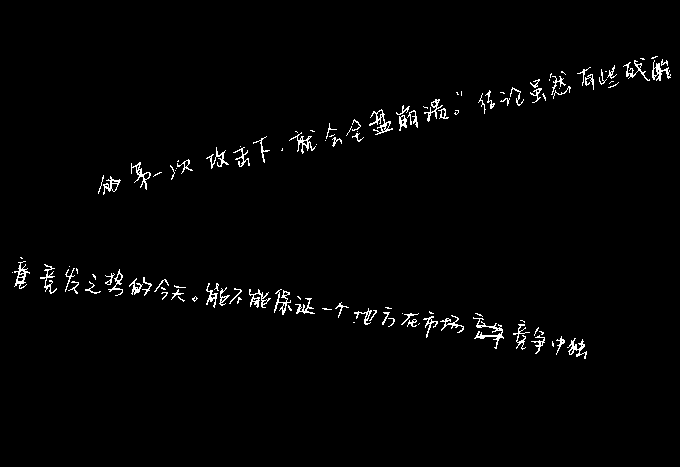 的第一次攻击下，就会全盘崩溃。”结论虽然有些残酷
竟发之势的今天。能不能保证一个地方在市场竞争中独